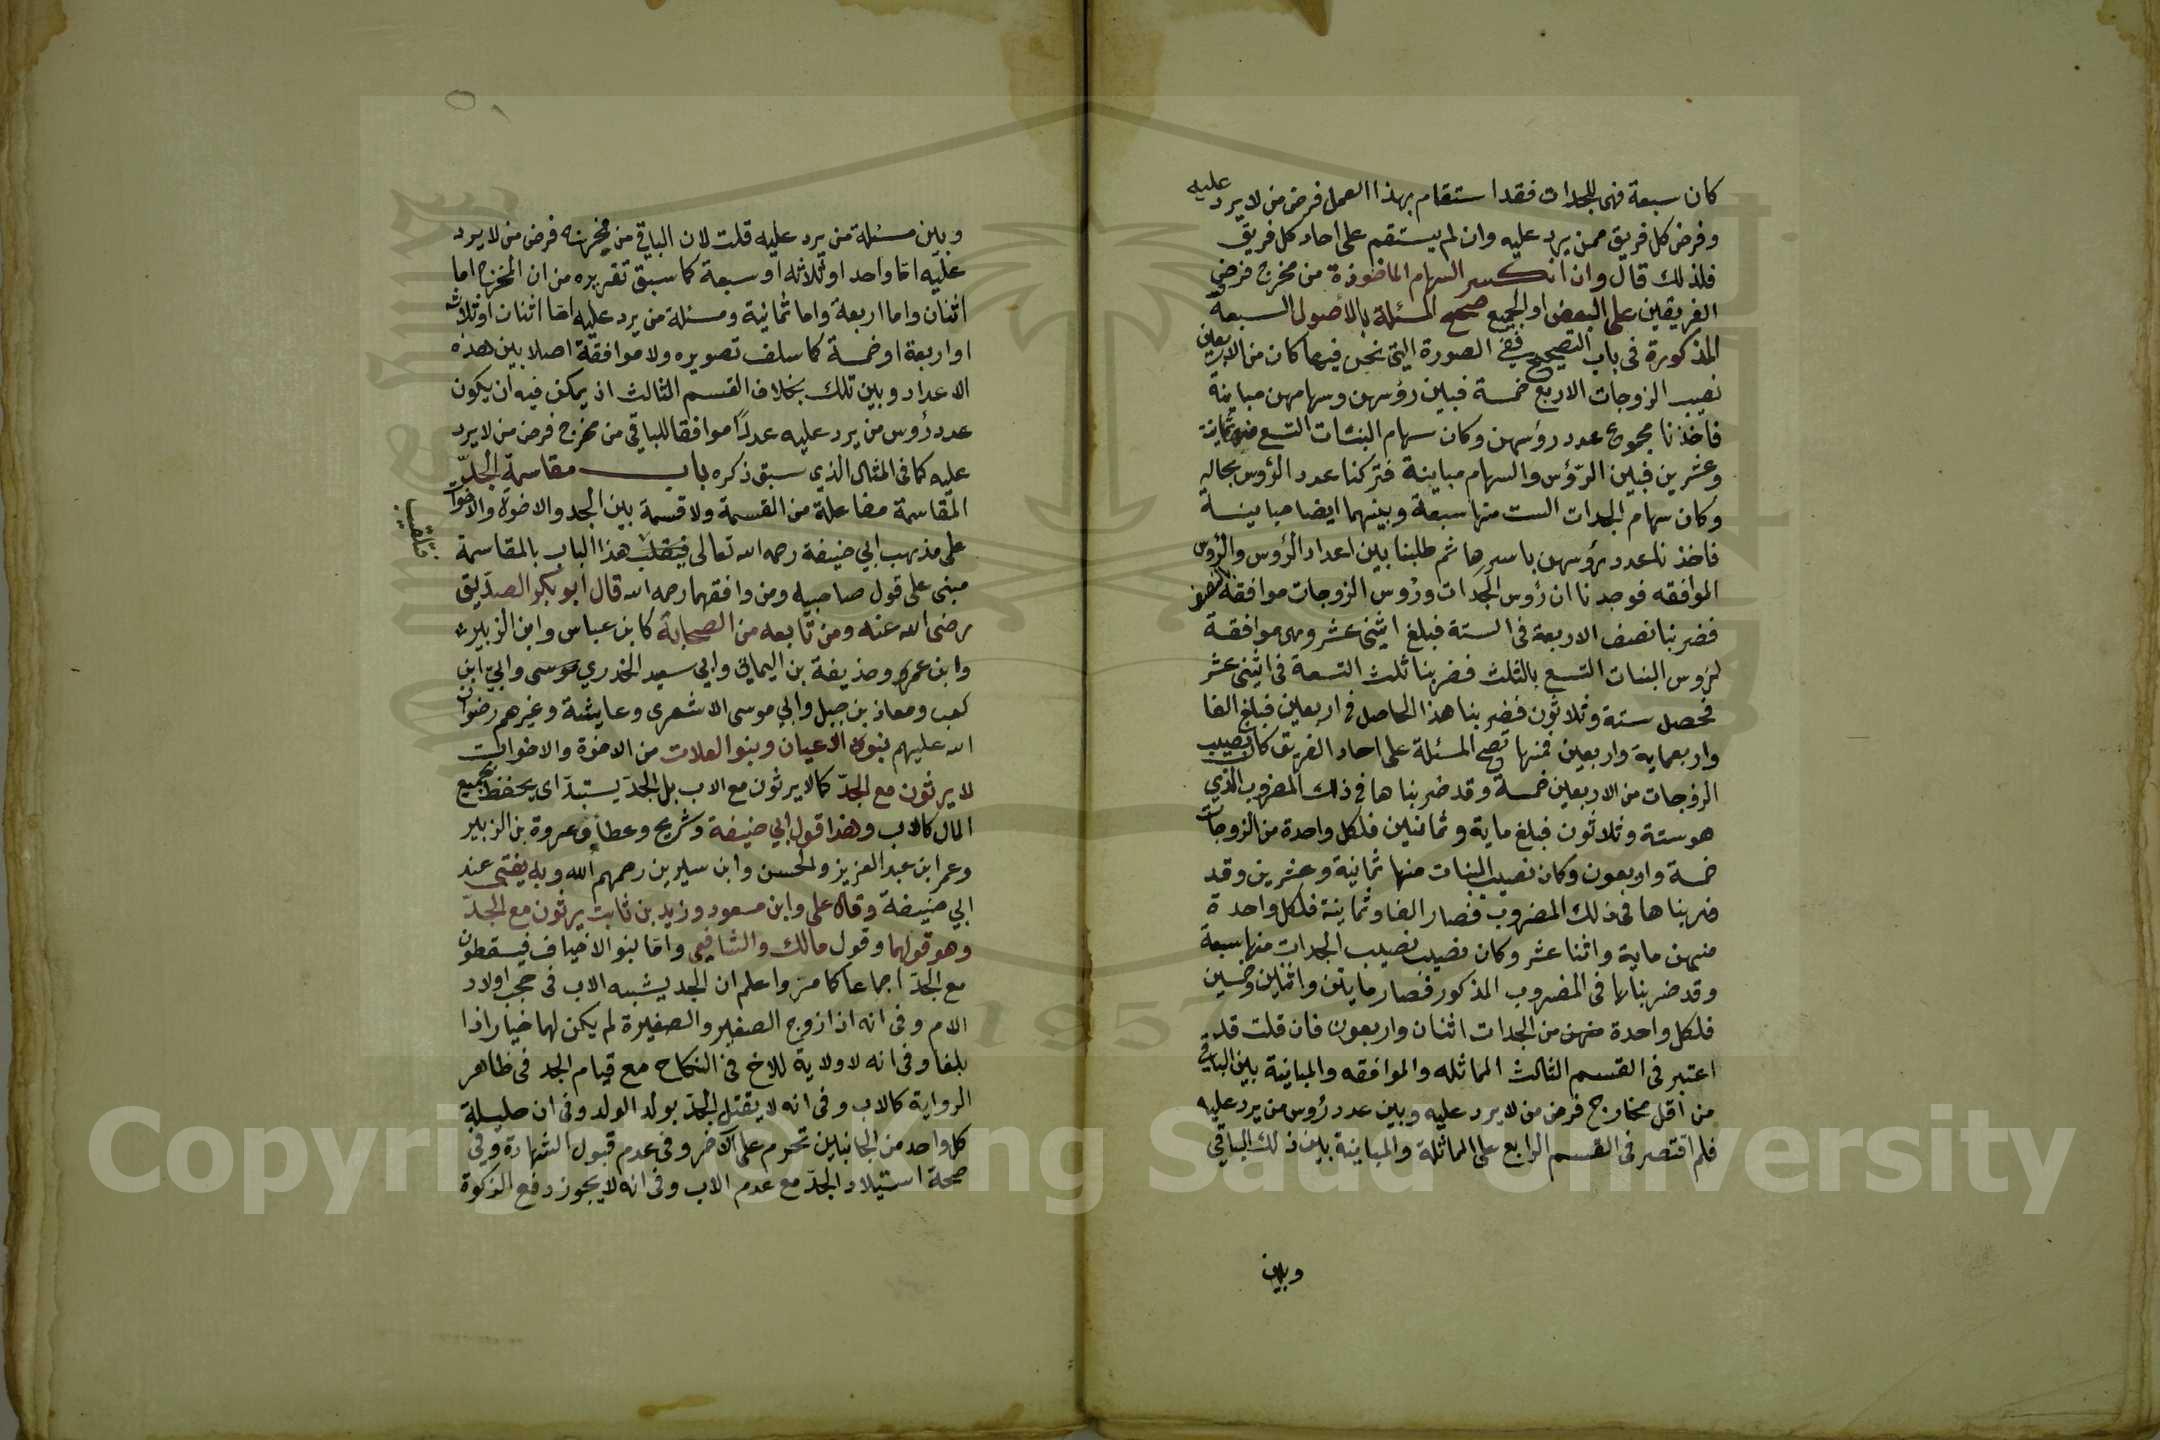 كان سبعة فهى للجدات فقد استقام بهذا العمل فرض من لا يرد عليه
وفرض كل فريق ممن يرد عليه وان لم يستقم على احاد كل فريق
فلذلك قال وان انكسر السهام الماخوذة من مخرج فرض
الفريقين على البعض او الجميع صحح المسئلة بالاصول السبعة
المذكورة فى باب التصحيح ففى الصورة التى نحن فيها كان من الاربعين
نصيب الزوجات الاربع خمسة فبين رؤسهن وسهامهن مباينة
فاخذنا مجموع عدد رؤسهن وكان سهام البنات التسع منها ثمانية
وعشرين فبين الرؤس والسهام مباينة فتركنا عدد الرؤس بحاله
وكان سهام الجدات الست منها سبعة وبينهما ايضا مباينة
فاخذنا عدد رؤسهن باسرها ثم طلبنا بين اعداد الرؤس والرؤس
الموافقه فوجدنا ان رؤس الجدات ورؤس الزوجات موافقة بالنصف
فضربنا نصف الاربعة فى الستة فبلغ اثنى عشر وهى موافقة
لرؤس البنات التسع بالثلث فضربنا ثلث التسعة فى اثنى عشر
فحصل ستة وثلاثون فضربنا هذا الحاصل فى اربعين فبلغ الفا
واربعماية واربعين فمنها تصح المسئلة على احاد الفريق كان نصيب
الزوجات من الاربعين خمسة وقد ضربناها فى ذلك المضروب الذي
هو ستة وثلاثون فبلغ ماية وثمانين فلكل واحدة من الزوجات
خمسة واربعون وكان نصيب البنات منها ثمانية وعشرين وقد
ضربناها فى ذلك المضروب فصار الفا وثمانية فلكل واحدة
منهن ماية واثنا عشر وكان نصيب نصيب الجدات منها سبعة
وقد ضربناها فى المضروب المذكور فصار مايتن واثنين وخمسين
فلكل واحدة منهن من الجدات اثنان واربعون فان قلت قد
اعتبر فى القسم الثالث المماثله والموافقه والمباينة بين الباقى
من اقل مخارج فرض من لا يرد عليه وبين عدد رؤس من يرد عليه
فلم اقتصر فى القسم الرابع على المماثلة والمباينة بين ذلك الباقي
وبين
وبين مسئلة من يرد عليه قلت لان الباقي من مخرج فرض من لا يرد
عليه اما واحد او ثلاثه او سبعة كما سبق تقريره من ان المخرج اما
اثنان واما اربعة واما ثمانية ومسئلة من يرد عليه اما اثنان او ثلاثة
او اربعة او خمسة كما سلف تصويره ولا موافقة اصلا بين هذه
الاعداد وبين تلك بخلاف القسم الثالث اذ يمكن فيه ان يكون
عدد رؤس من يرد عليه عددا موافقا للباقي من مخرج فرض من لا يرد
عليه كما فى المثال الذي سبق ذكره باب مقاسمة الجد
المقاسمة مفاعلة من القسمة ولا قسمة بين الجد والاخوة والاخوات
على مذهب ابي حنيفة رحمه الله تعالى فيقلب هذا الباب بالمقاسمة
فتلقيب
مبنى على قول صاحبيه ومن وافقهما رحمه الله قال ابو بكر الصديق
رضى الله عنه ومن تابعه من الصحابة كابن عباس وابن الزبير
وابن عمر وحذيفة بن اليمانى وابي سعيد الخدري موسى وابي ابن
كعب ومعاذ بن جبل وابي موسى الاشعرى وعايشة وغيرهم رضوان
الله عليهم بنوا الاعيان وبنو العلات من الاخوة والاخوات
لا يرثون مع الجد كما لا يرثون مع الاب بل الجد يستبد اى يحفظ بجميع
المال كالاب وهذا قول ابي حنيفة وشريح وعطاء وعروة بن الزبير
وعمر ابن عبد العزيز والحسن وابن سيرين رحمهم الله وبه يفتى عند
ابي حنيفة وقال على وابن مسعود وزيد بن ثابت يرثون مع الجد
وهو قولهما وقول مالك والشافعى واما بنو الاخياف فيسقطون
مع الجد اجماعا كما مر واعلم ان الجد يشبه الاب فى حجب اولاد
الام وفى انه اذا زوج الصغير والصغيرة لم يكن لهما خيار اذا
بلغا وفى انه لا ولاية للاخ فى النكاح مع قيام الجد فى ظاهر
الرواية كالاب وفى انه لا يقتل الجد بولد الولد وفى ان حليلة
كل واحد من الجانبين تحرم على الآخر وفى عدم قبول الشهادة وفى
صحة استيلاد الجد مع عدم الاب وفى انه لا يجوز دفع الزكوة
Copyright © King Saud University
1957